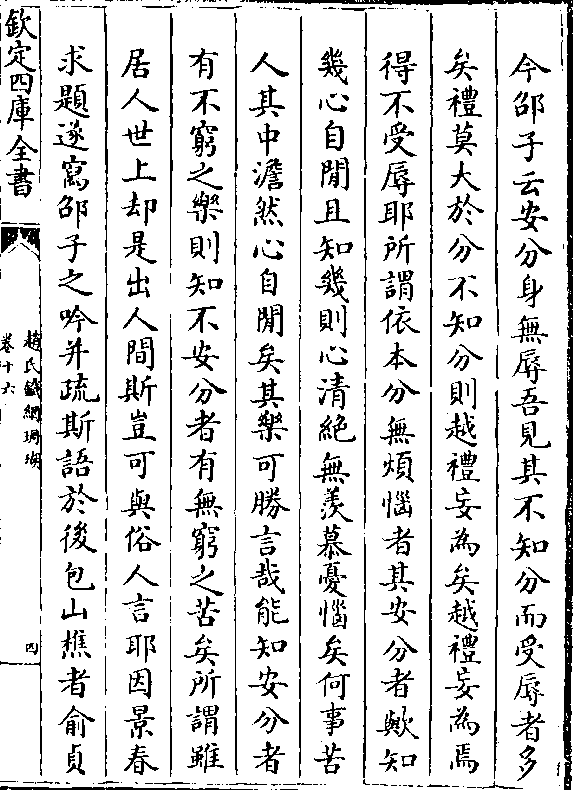 今邵子云安分身無辱吾見其不知分而受辱者多
矣禮莫大於分不知分則越禮妄為矣越禮妄為焉
得不受辱耶所謂依本分無煩惱者其安分者歟知
幾心自閒且知幾則心清絶無羨慕憂惱矣何事苦
人其中澹然心自閒矣其樂可勝言哉能知安分者
有不窮之樂則知不安分者有無窮之苦矣所謂雖
居人世上却是出人間斯豈可與俗人言耶因景春
求題遂寫邵子之吟并疏斯語於後包山樵者俞貞
欽定四庫全書
趙氏鐵網珊瑚
卷十六
四